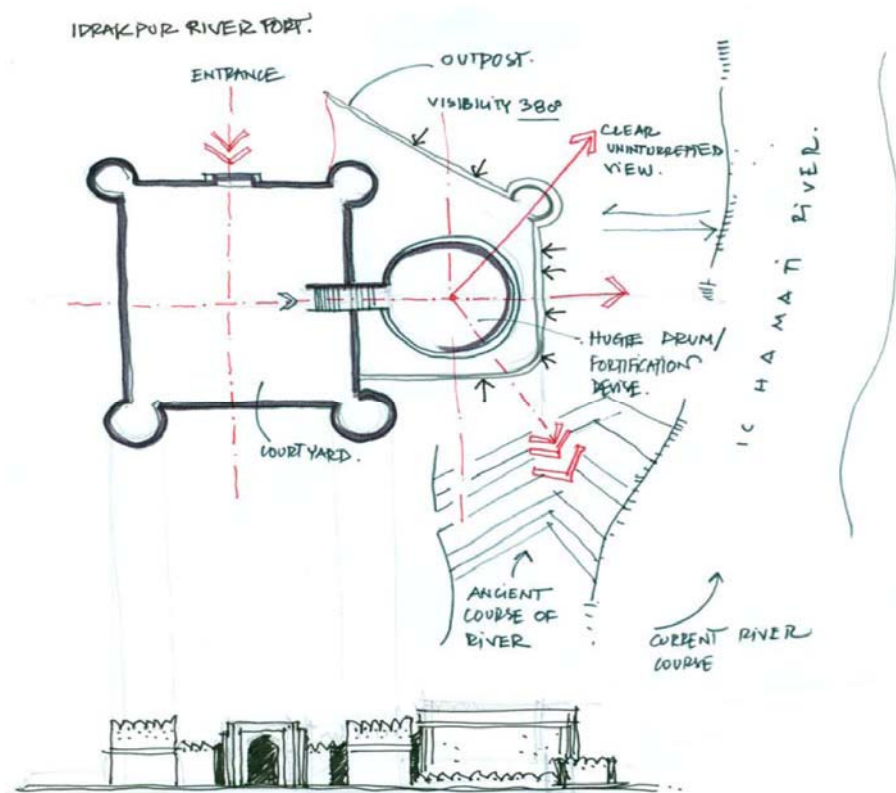 IDRAKPUR RIVER FORT.
ENTRANCE
OUTPOST.
VISIBILITY 380°
CLEAR
UNINTURREPTED
VIEW.
ICHAMATI RIVER.
HUGE DRUM/
FORTIFICATION
DEVISE.
COURTYARD.
ANCIENT
COURSE OF
RIVER
CURRENT RIVER
COURSE